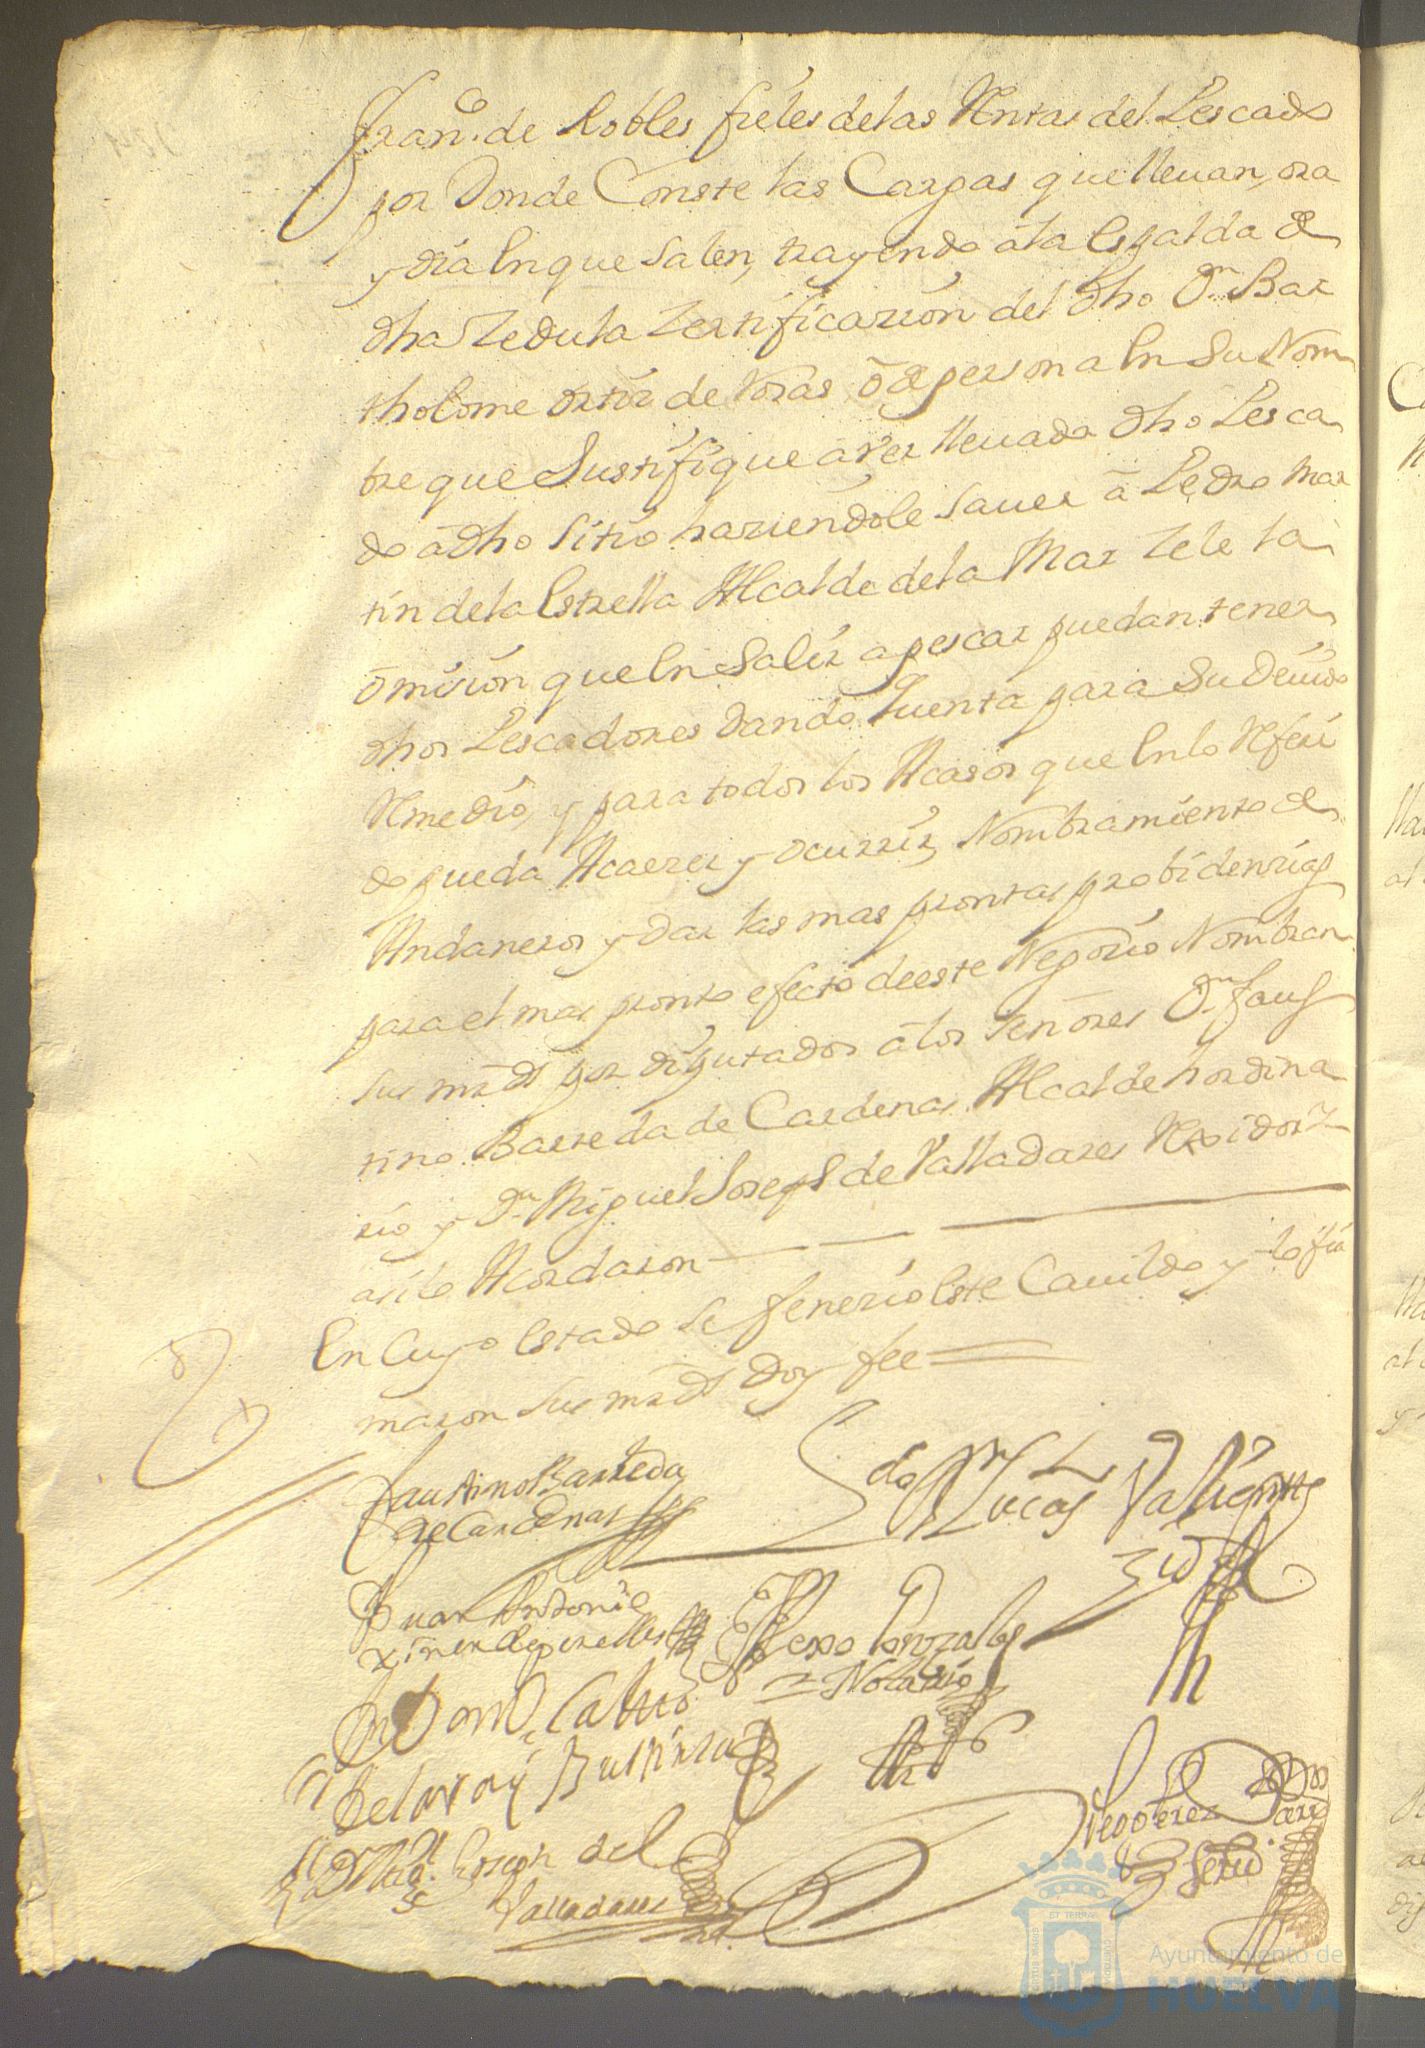 Fran.co de Robles fieles de las Rentas del Pescado
por Donde Conste las Cargas que lleuan, ora
y dia En que Salen, trayendo â la Espalda de
dha Zedula Zertificazion del dho Dn. Bar
tholome Ortiz de Rozas ô de persona En Su Nom
bre que Justifique aver lleuado dho Pesca
do â dho Sitio haziendole Sauer â Pedro Mar
tin de la Estrella Alcalde de la Mar Zele la
ômision que En Salir a pescar puedan tener
dhos Pescadores Dando Quenta para Su Deuido
Remedio, y para todos los Acasos que En lo Referi
do pueda Acaezer y ocurrir, Nombramiento de
Andaneros y Dar las mas prontas probidenzias
para el mas pronto efecto de este Negozio Nombran
sus mrds por diputados â los Señores Dn. faus
tino Barreda de Cardenas Alcalde hordina
rio y Dn. Miguel Joseph de Valladares Rexidor Y
asi lo Acordaron
En Cuyo Estado Se fenezio Este Cauildo y lo fir
maron Sus mrds Doy fee
Faustino Barreda
de Cardenas
Lucas Valiente
Juan Antonio
Alexo Gonzales
Notario
Miguel Joseph de
Valladares
Diego Perez